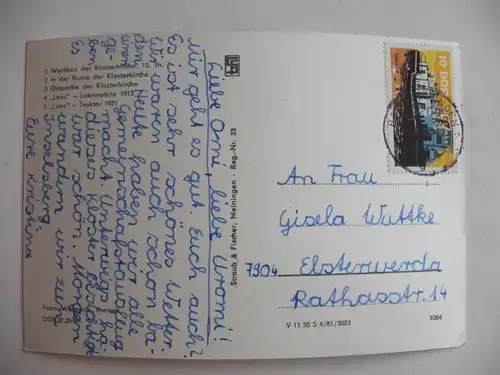 1 Westbau der Klosterkirche, 12. Jh.
2 In der Ruine der Klosterkirche
3 Ostpartie der Klosterkirche
4 „Lanz" – Lokomobile 1913
5 „Lanz" – Traktor 1921
Liebe Omi, liebe Uromi!
Mir geht es gut. Euch auch?
Es ist sehr schönes Wetter.
Wir waren auch schon ba-
den. Heute haben wir alle
einen Gemeinschaftsausflug
ge-
macht. Unterwegs ha-
ben dieses Kloster besichtigt
Es war schön. Morgen
wandern wir zum
Inselsberg.
Eure Kristina
Straub & Fischer, Meiningen - Reg.-Nr. 23
10 DDR
An Frau
Gisela Wuttke
7904 Elsterwerda
Rathausstr. 14
V 11 50 S 4/81/3023
9304